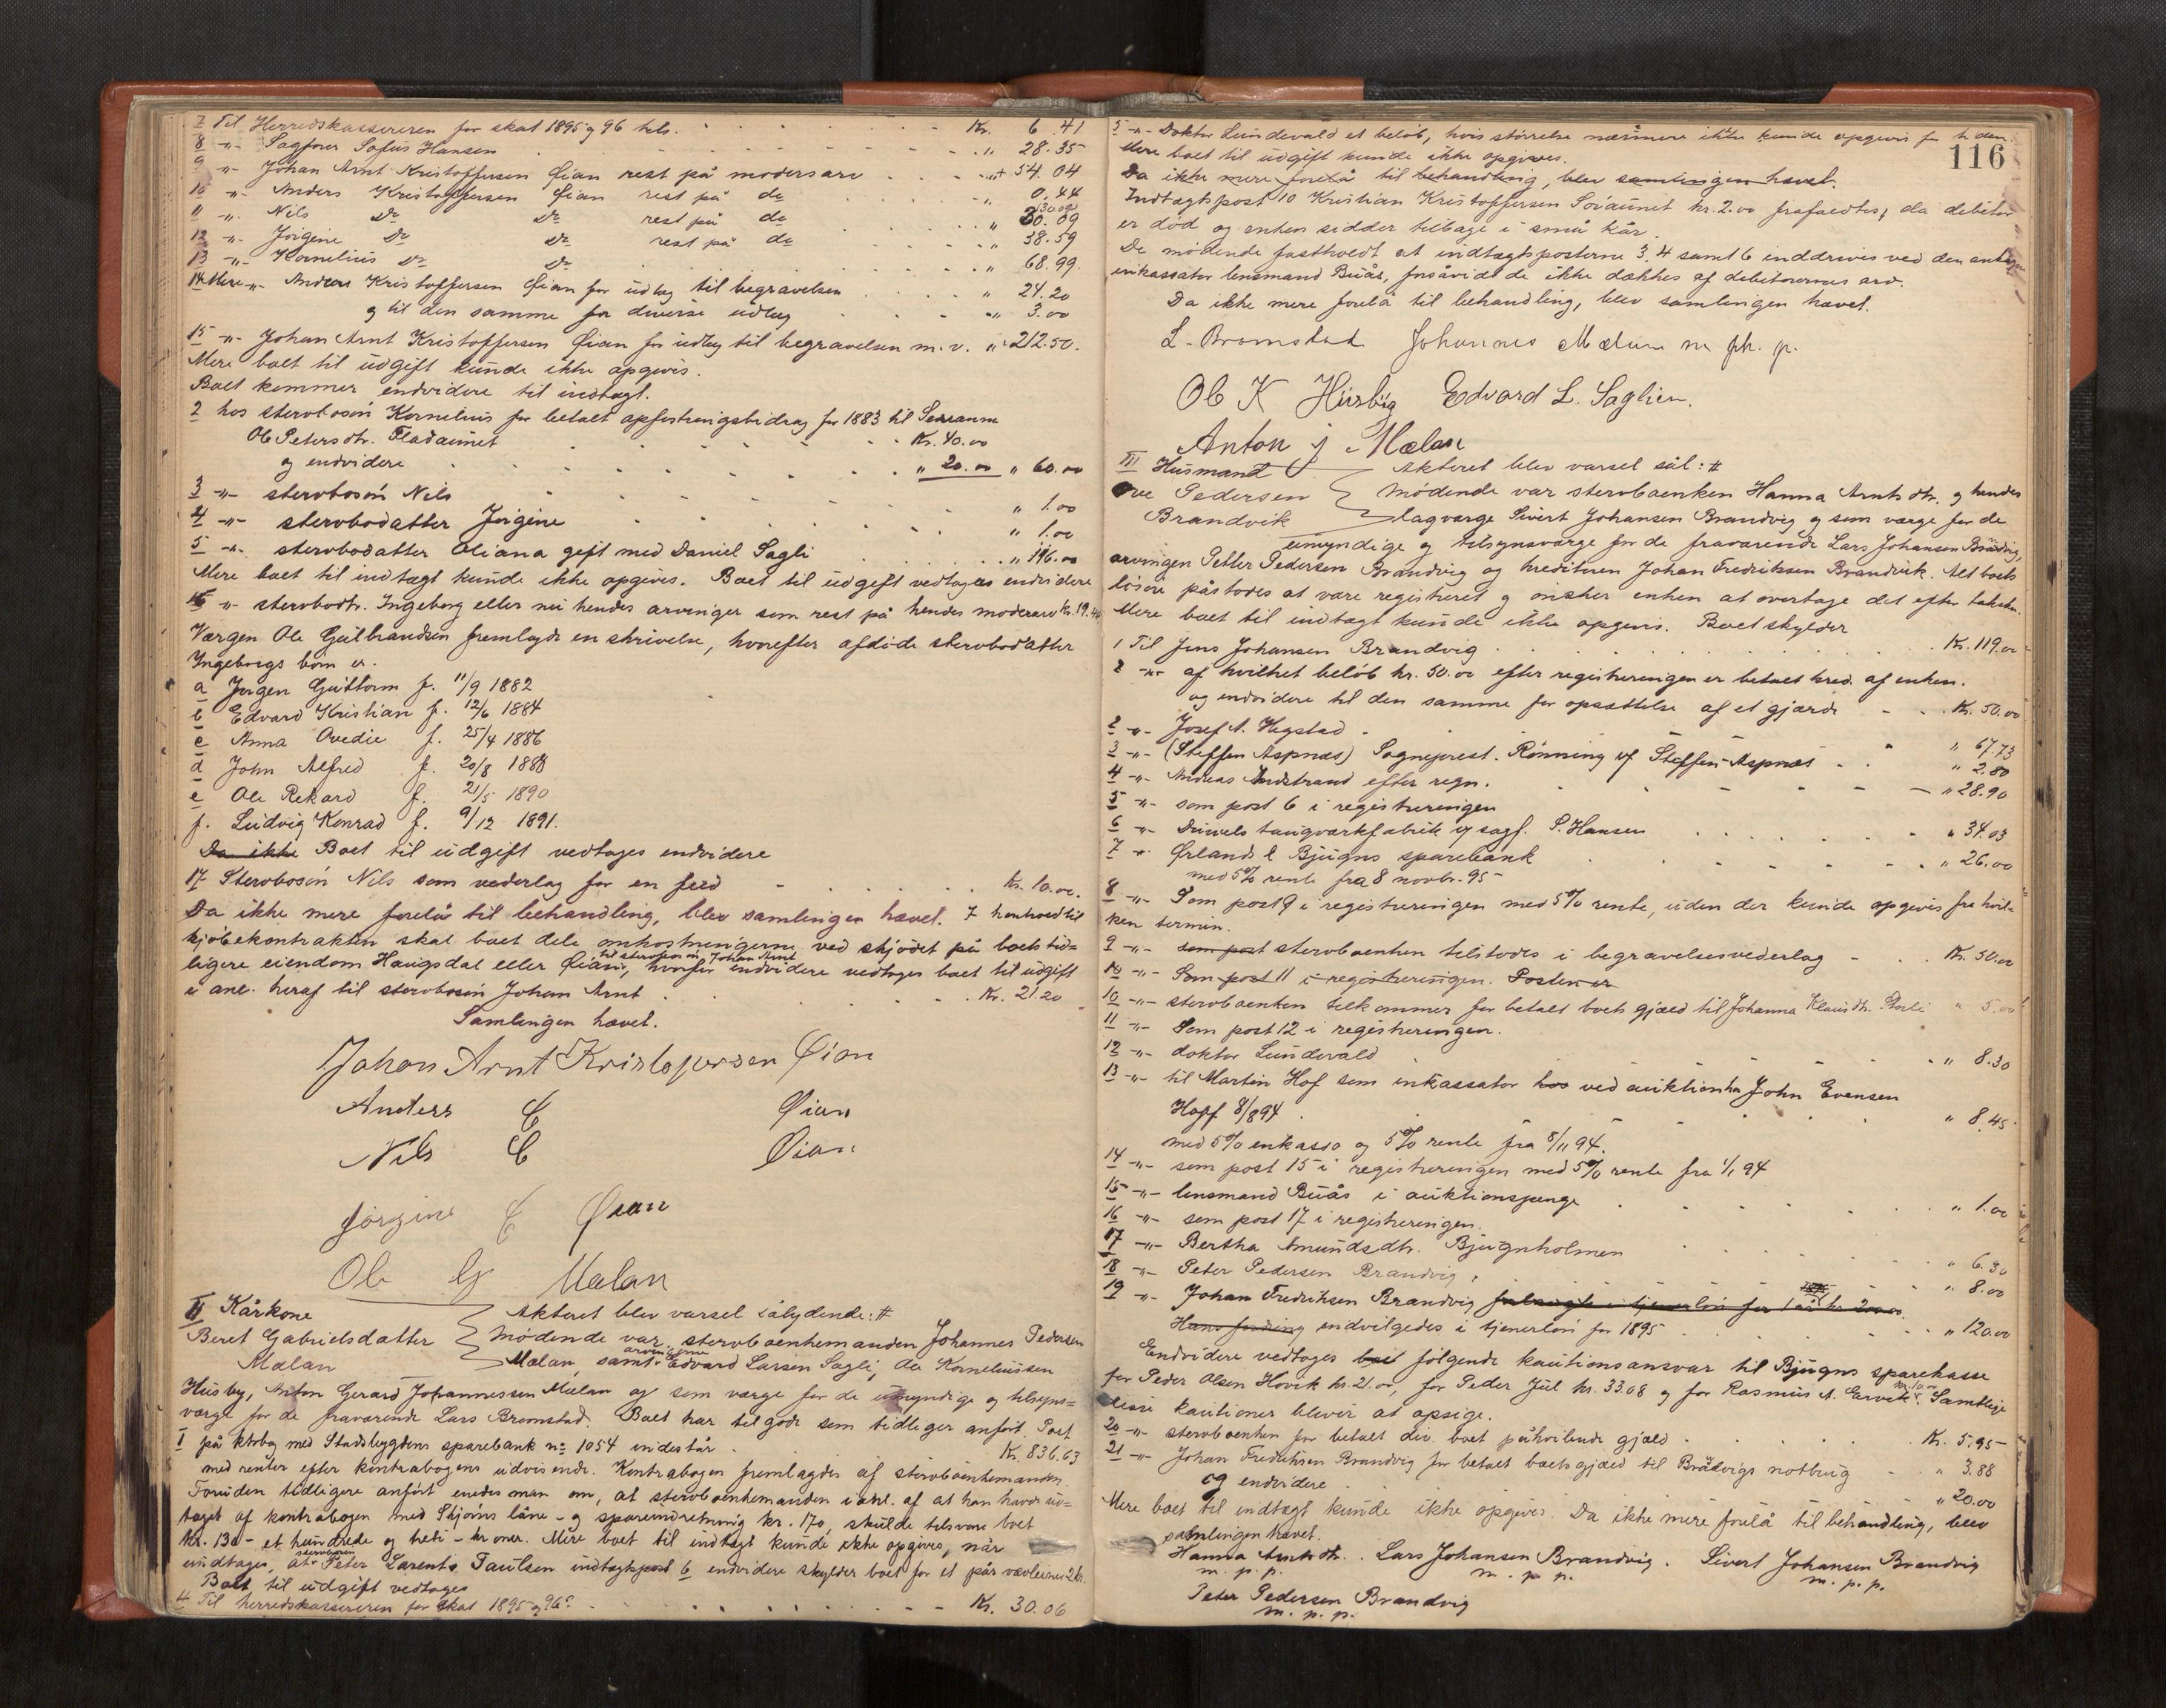 7 Til Herredskassereren for skat 1895 og 96 tils. Kr. 6.41
8 -"- Sagfører Sofus Hansen " 28.35
9 -"- Johan Arnt Kristoffersen Øian rest på modersarv " 54.04
10 -"- Anders Kristoffersen Øian rest på do " 0.44
11 -"- Nils Do Do rest på do " 30.09
12 -"- Jörgine Do Do rest på do " 38.59
13 -"- Kornelius Do Do " 68.99
14 Mere -"- Anders Kristoffersen Øian for udlæg til begravelsen " 24.20
og til den samme for diverse udlæg " 3.00
15 -"- Johan Arnt Kristoffersen Øian for udlæg til begravelsen m.v. " 212.50.
Mere boet til udgift kunde ikke opgives.
Boet kommer endvidere til indtægt.
2 hos stervbosön Kornelius for betalt opfostringsbidrag for 1883 til
Ole Petersdtr. Fladaunet Kr. 40.00
og endvidere " 20.00 " 60.00
3 -"- stervbosön Nils " 1.00
4 -"- stervbodatter Jörgine " 1.00
5 -"- stervbodatter Oliana gift med Daniel Sagli " 116.00
Mere boet til indtægt kunde ikke opgives. Boet til udgift vedtages endvidere
16 -"- stervbodtr. Ingeborg eller nu hendes arvinger som rest på hendes modersarv Kr. 19.
Værgen Ole Gulbrandsen fremlagde en skrivelse, hvorefter afdøde stervbodatter
Ingeborgs børn er.
a Jörgen Guttorm f. 11/9 1882
b Edvard Kristian f. 12/6 1884
c Anna Ovedie f. 25/4 1886
d John Alfred f. 20/8 1888
e Ole Rekard f. 21/5 1890
f. Ludvig Konrad f. 9/12 1891.
Da ikke Boet til udgift vedtages endvidere
17 Stervbosön Nils som vederlag for en Kr. 10.00.
Da ikke mere forelå til behandling, blev samlingen hævet. I henhold til
kjøbekontrakten skal boet dele omkostningerne ved skjødet på boets tid=
til stervbosön Johan Arnt
ligere eiendom Haugsdal eller Øian, hvorfor endvidere vedtages boet til udgift
i anl. heraf til stervbosön Johan Arnt Kr. 21.20
Samlingen hævet.
Johan Arnt Kristofersen Øian
Anders C Øian
Nils C Øian
Jörgine C Øian
Ole G Mælan
II Kårkone
Beret Gabrielsdatter
Mælan
Akteret blev varsel sålydende: #
Mødende var stervboenkemanden Johannes Pedersen
arvingerne
Mælan, samt Edvard Larsen Sagli, Ole Korneliussen
Husby, Anton Gerard Johannessen Mælan og som værge for de umyndige og tilsyns=
værge for de fraværende Lars Bromstad. Boet har tilgode som tidligere anført. Post
1 på ktrbog med Stadsbygdens sparebank no 1054 indestår Kr. 836.63
med renter efter kontrabogens udvisende. Kontrabogen fremlagdes af stervboenkemanden
Foruden tidligere anført enedes man om, at stervboenkemanden i anl. af at han havde ud=
taget af kontrabogen med Skjørns låne- og spareindretning kr. 170, skulde tilsvare boet
Kr. 130 - et hundrede og treti - kroner. Mere boet til indtægt kunde ikke opgives, når
stervbosön
undtages, at Peter Larents Paulsen indtægtspost 6 endvidere skylder boet for et par 2 kr.
Boet til udgift vedtages
4 Til herredskassereren for skat 1895 og 96 Kr. 30.06
116
5 -"- Doktor Lundevald et beløb, hvis størrelse nærmere ikke kunde opgives for tiden.
Mere boet til udgift kunde ikke opgives.
Da ikke mere forelå til behandling, blev samlingen hævet.
Indtægtspost 10 Kristian Kristoffersen Soraunet kr. 2.00 frafaldtes, da debitor
er død og enken sidder tilbage i små kår.
De mødende fastholdt at indtægtsposterne 3, 4 samt 6 inddrives ved den
inkassator lensmand Buås, forsåvidt de ikke dækkes af debitorernes arv.
Da ikke mere forelå til behandling, blev samlingen hævet.
L. Bromstad Johannes Mælan m. f. h. p.
Ole K Husby Edvard L. Saglien.
Anton J Mælan
III Husmand
Ove Pedersen
Brandvik
Akteret blev varsel sål: #
Mødende var stervboenken Hanna Arntsdtr. og hendes
lagværge Sivert Johansen Brandvig og som værge for de
umyndige og tilsynsværge for de fraværende Lars Johansen Brandvig,
arvingen Petter Pedersen Brandvig og kreditoren Johan Fredriksen Brandvik. Alt boets
løsøre påstodes at være registreret og ønsker enken at overtage det efter taksten.
Mere boet til indtægt kunde ikke opgives. Boet skylder
1 Til Jens Johansen Brandvig Kr. 119.00
2 -"- af hvilket beløb kr. 50.00 efter registreringen er betalt kred. af enken.
og endvidere til den samme for opsættelse af et gjærde Kr. 50.00
2 -"- Josef A. Hegstad " 67.73
3 -"- (Steffen Aspnæs) Sogneprest Rønning v/ Steffen Aspnæs " 2.80
4 -"- Andreas Indstrand efter regn. " 28.90
5 -"- som post 6 i registreringen
6 -"- Duuels taugværkfabrik v/ sagf. S. Hansen " 34.03
7 -"- Ørlands & Bjugns sparebank " 26.00
med 5% rente fra 8 novbr. 95
8 -"- Som post 9 i registreringen med 5% rente, uden der kunde opgives fra hvil=
ken termin.
9 -"- som post stervboenken tilstodes i begravelsesvederlag Kr. 50.00
10 -"- Som post 11 i registreringen. Posten er
10 -"- stervboenken tilkommer for betalt boets gjæld til Johanna Klausdtr. " 5.00
11 -"- Som post 12 i registreringen.
12 -"- doktor Lundevald " 8.30
13 -"- til Martin Hof som inkassator hos ved auktion hos John Evensen
Hopf 8/8 94 " 8.45
med 5% enkasso og 5% rente fra 8/11 94.
14 -"- som post 15 i registreringen med 5% rente fra 1/1 94
15 -"- lensmand Buås i auktionspenge " 1.00
16 -"- som post 17 i registreringen.
17 -"- Bertha Amundsdtr. Bjugnholmen " 6.30
18 -"- Peter Pedersen Brandvig " 8.00
19 -"- Johan Fredriksen Brandvig i tjenerløn for 1 år kr. 200.00
Hans fordring endvilgedes i tjenerløn for 1895 " 120.00
Endvidere vedtages boet følgende kautionsansvar til Bjugns sparekasse
kr. 10.00
for Peder Olsen Hovik kr. 21.00, for Peder Jul kr. 33.08 og for Rasmus A. Ervik. Samtlige
disse kautioner blevir at opsige.
20 -"- stervboenken for betalt div. boet påhvilende gjæld Kr. 5.95
21 -"- Johan Fredriksen Brandvig for betalt boets gjæld til Brandvigs notbrug " 3.88
og endvidere " 20.00
Mere boet til indtægt kunde ikke opgives. Da ikke mere forelå til behandling, blev
samlingen hævet.
Hanna Arntsdtr. Lars Johansen Brandvig. Sivert Johansen Brandvig
m. p. p. m. p. p. m. p. p.
Peter Pedersen Brandvig
m. p. p.